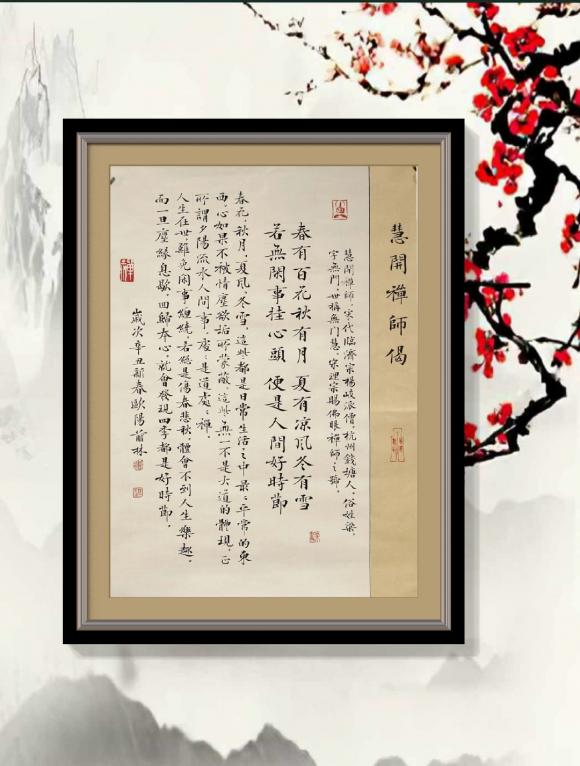 慧開禪師偈
慧開禪師，宋代臨濟宗楊岐派僧，杭州錢塘人，俗姓梁，
字無門，世稱無門慧，宋理宗賜佛眼禪師之號。
春有百花秋有月 夏有凉風冬有雪
若無閑事挂心頭 便是人間好時節
春花、秋月、夏風、冬雪，這些都是日常生活之中最〻平常的東
西，心如果不被情塵欲垢所蒙蔽，這些無一不是大道的體現，正
所謂夕陽流水人間事，處〻是道處〻禪。
人生在世，難免閑事纏繞，若總是傷春悲秋，體會不到人生樂趣，
而一旦塵緣息歇，回歸本心，就會發現四季都是好時節。
歲次辛丑新春歐陽林